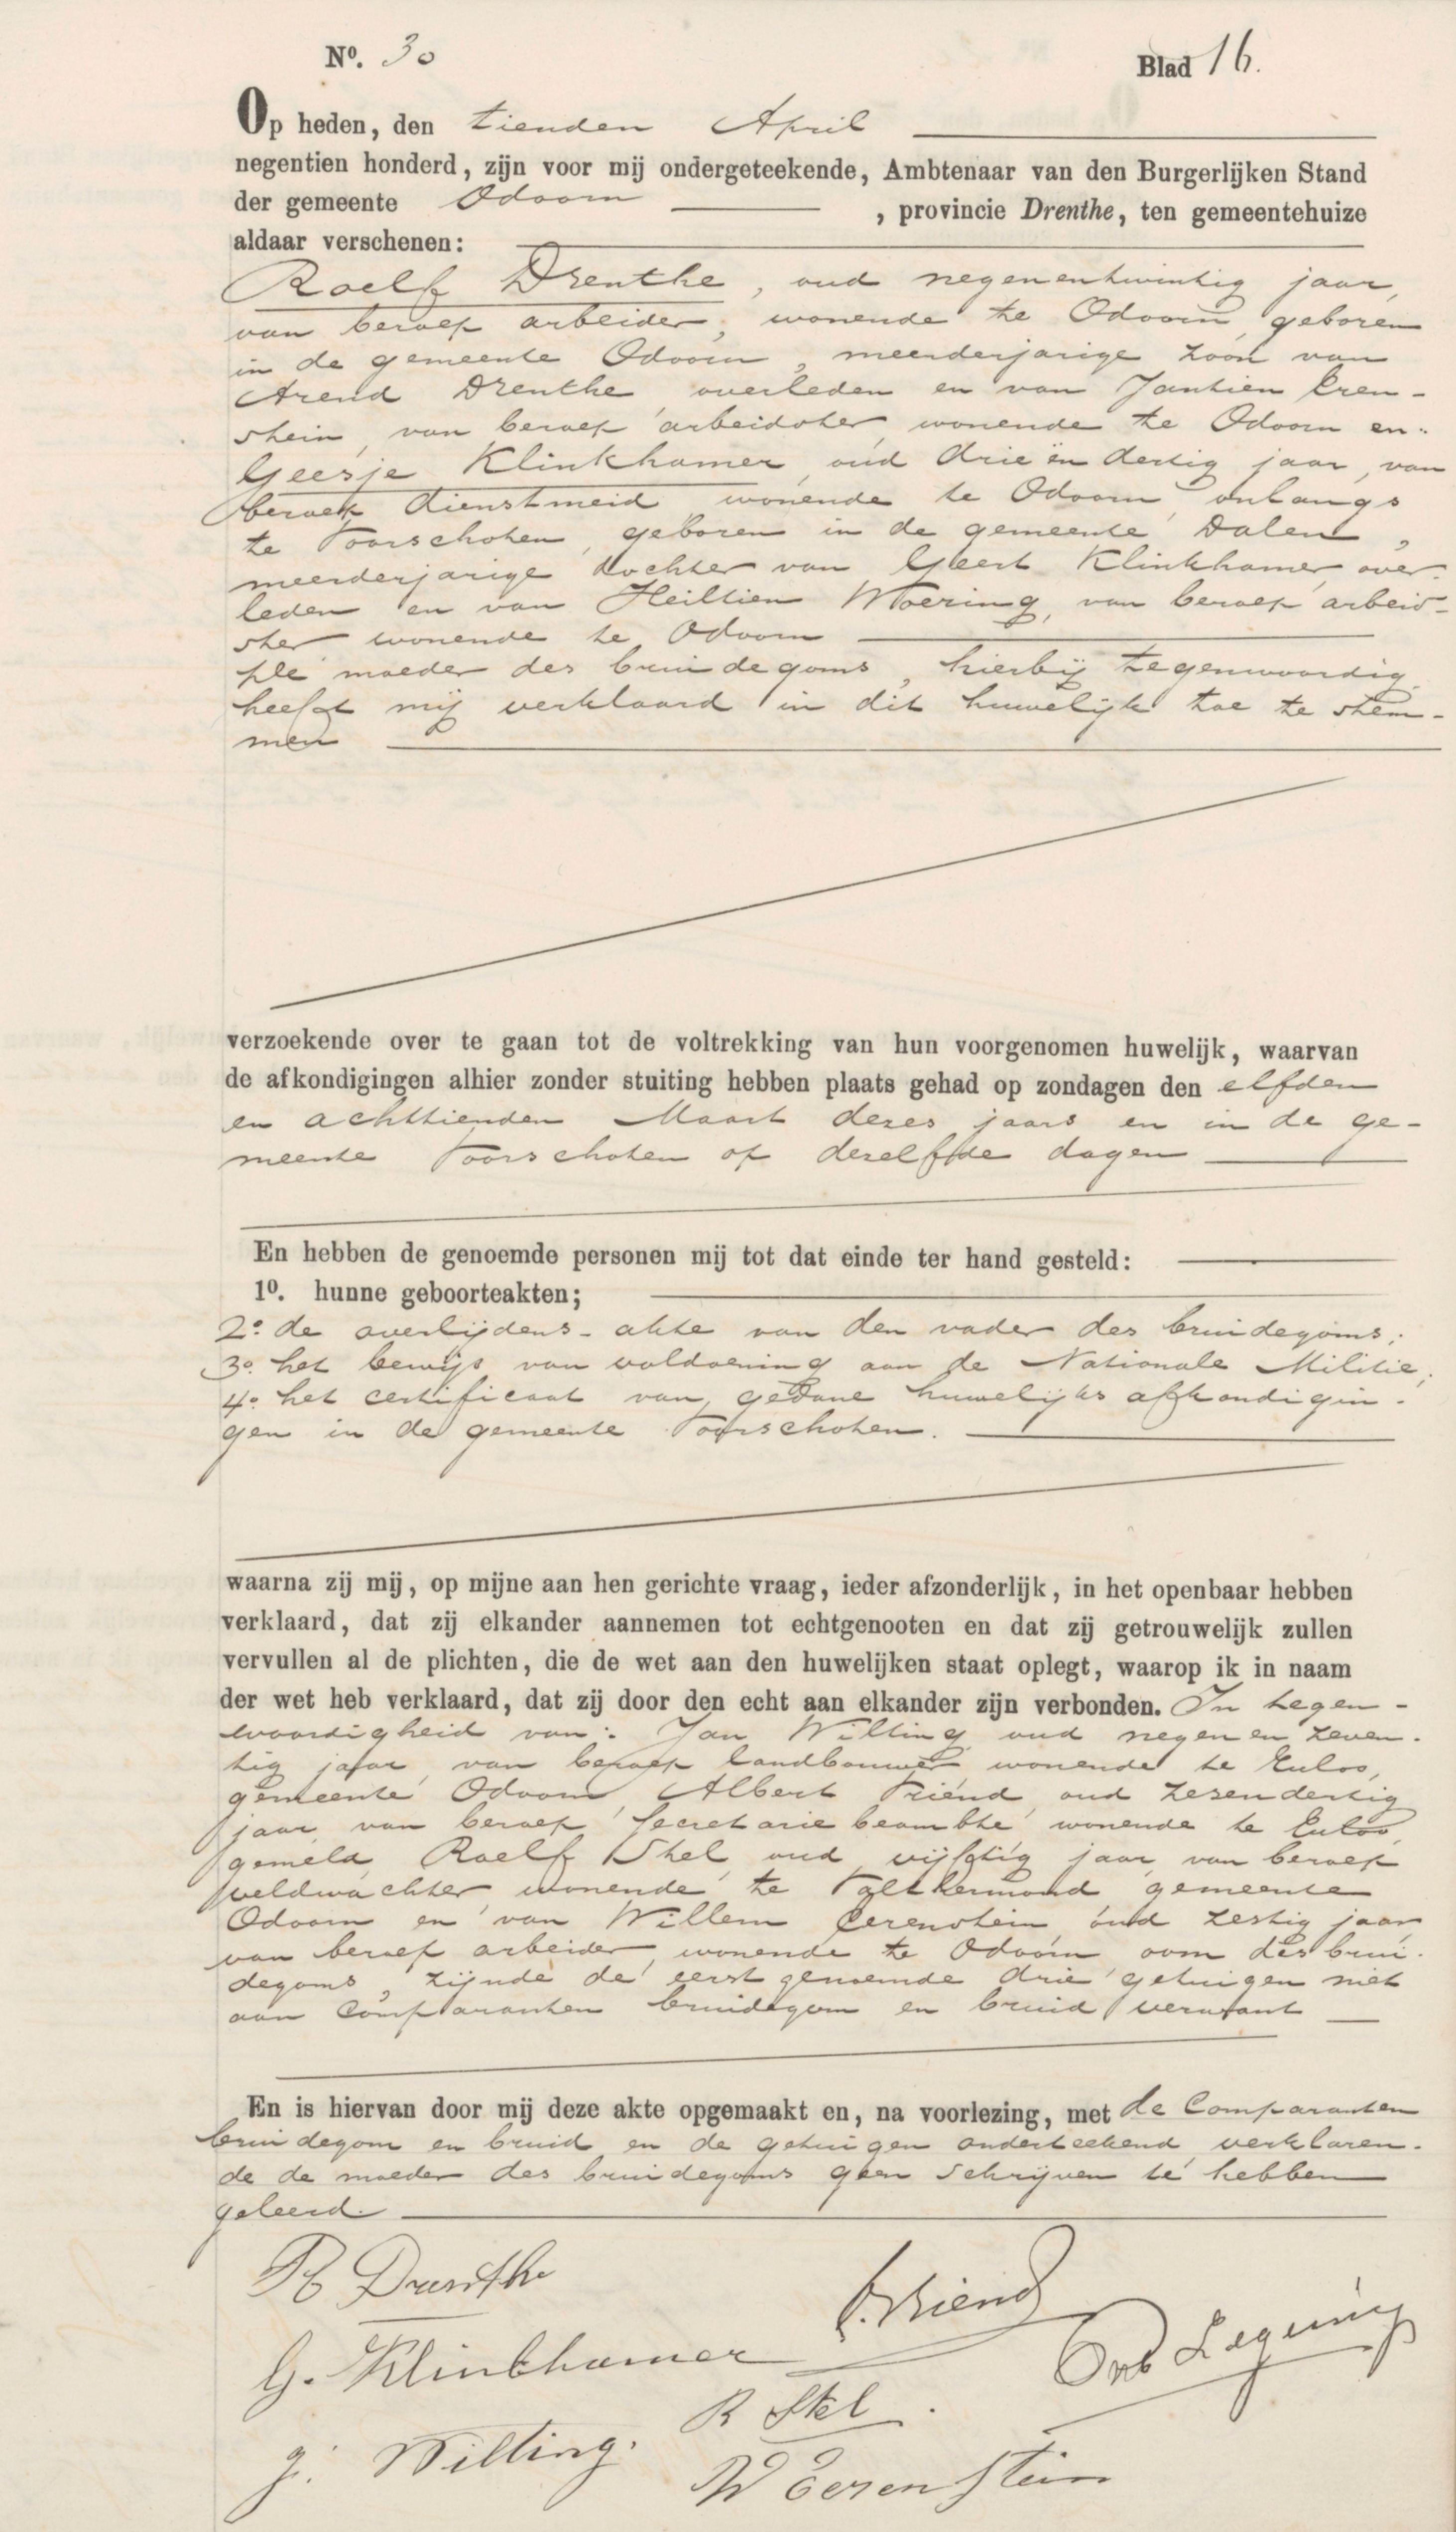 Nº. 30 Blad 16.
Op heden, den tienden April
negentien honderd, zijn voor mij ondergeteekende, Ambtenaar van den Burgerlijken Stand
der gemeente Odoorn, provincie Drenthe, ten gemeentehuize
aldaar verschenen:
Roelf Drenthe, oud negenentwintig jaar,
van beroep arbeider, wonende te Odoorn, geboren
in de gemeente Odoorn, meerderjarige zoon van
Arend Drenthe overleden en van Jantien Eren-
stein, van beroep arbeidster, wonende te Odoorn en:
Geesje Klinkhamer, oud drie en dertig jaar, van
beroep dienstmeid, wonende te Odoorn, onlangs
te Voorschoten, geboren in de gemeente Dalen,
meerderjarige dochter van Geert Klinkhamer, over-
leden en van Heiltien Moering, van beroep arbeid-
ster wonende te Odoorn
De moeder des bruidegoms, hierbij tegenwoordig
heeft mij verklaard in dit huwelijk toe te stem-
men
verzoekende over te gaan tot de voltrekking van hun voorgenomen huwelijk, waarvan
de afkondigingen alhier zonder stuiting hebben plaats gehad op zondagen den elfden
en achttienden Maart dezes jaars en in de ge-
meente Voorschoten op dezelfde dagen
En hebben de genoemde personen mij tot dat einde ter hand gesteld:
1º. hunne geboorteakten;
2º. de overlijdens-akte van den vader des bruidegoms;
3º. het bewijs van voldoening aan de Nationale Militie;
4º. het certificaat van gedane huwelijks afkondigin-
gen in de gemeente Voorschoten.
waarna zij mij, op mijne aan hen gerichte vraag, ieder afzonderlijk, in het openbaar hebben
verklaard, dat zij elkander aannemen tot echtgenooten en dat zij getrouwelijk zullen
vervullen al de plichten, die de wet aan den huwelijken staat oplegt, waarop ik in naam
der wet heb verklaard, dat zij door den echt aan elkander zijn verbonden. In tegen-
woordigheid van: Jan Wilting, oud negen en zeven-
tig jaar, van beroep landbouwer wonende te Exloo,
gemeente Odoorn, Albert Vriend, oud zesendertig
jaar, van beroep Secretarie beambte wonende te Exloo,
gemeld, Roelf Stel, oud vijftig jaar, van beroep
veldwachter wonende te Valthermond gemeente
Odoorn en van Willem Eerenstein oud zestig jaar
van beroep arbeider, wonende te Odoorn, oom des brui-
degoms, zijnde de eerst genoemde drie getuigen niet
aan Comparanten bruidegom en bruid verwant
En is hiervan door mij deze akte opgemaakt en, na voorlezing, met de Comparanten
bruidegom en bruid en de getuigen onderteekend, verklaren-
de de moeder des bruidegoms geen schrijven te hebben
geleerd.
R Drenthe
A. Vriend
G. Klinkhamer
R Stel.
J. Wilting.
W Eerenstein